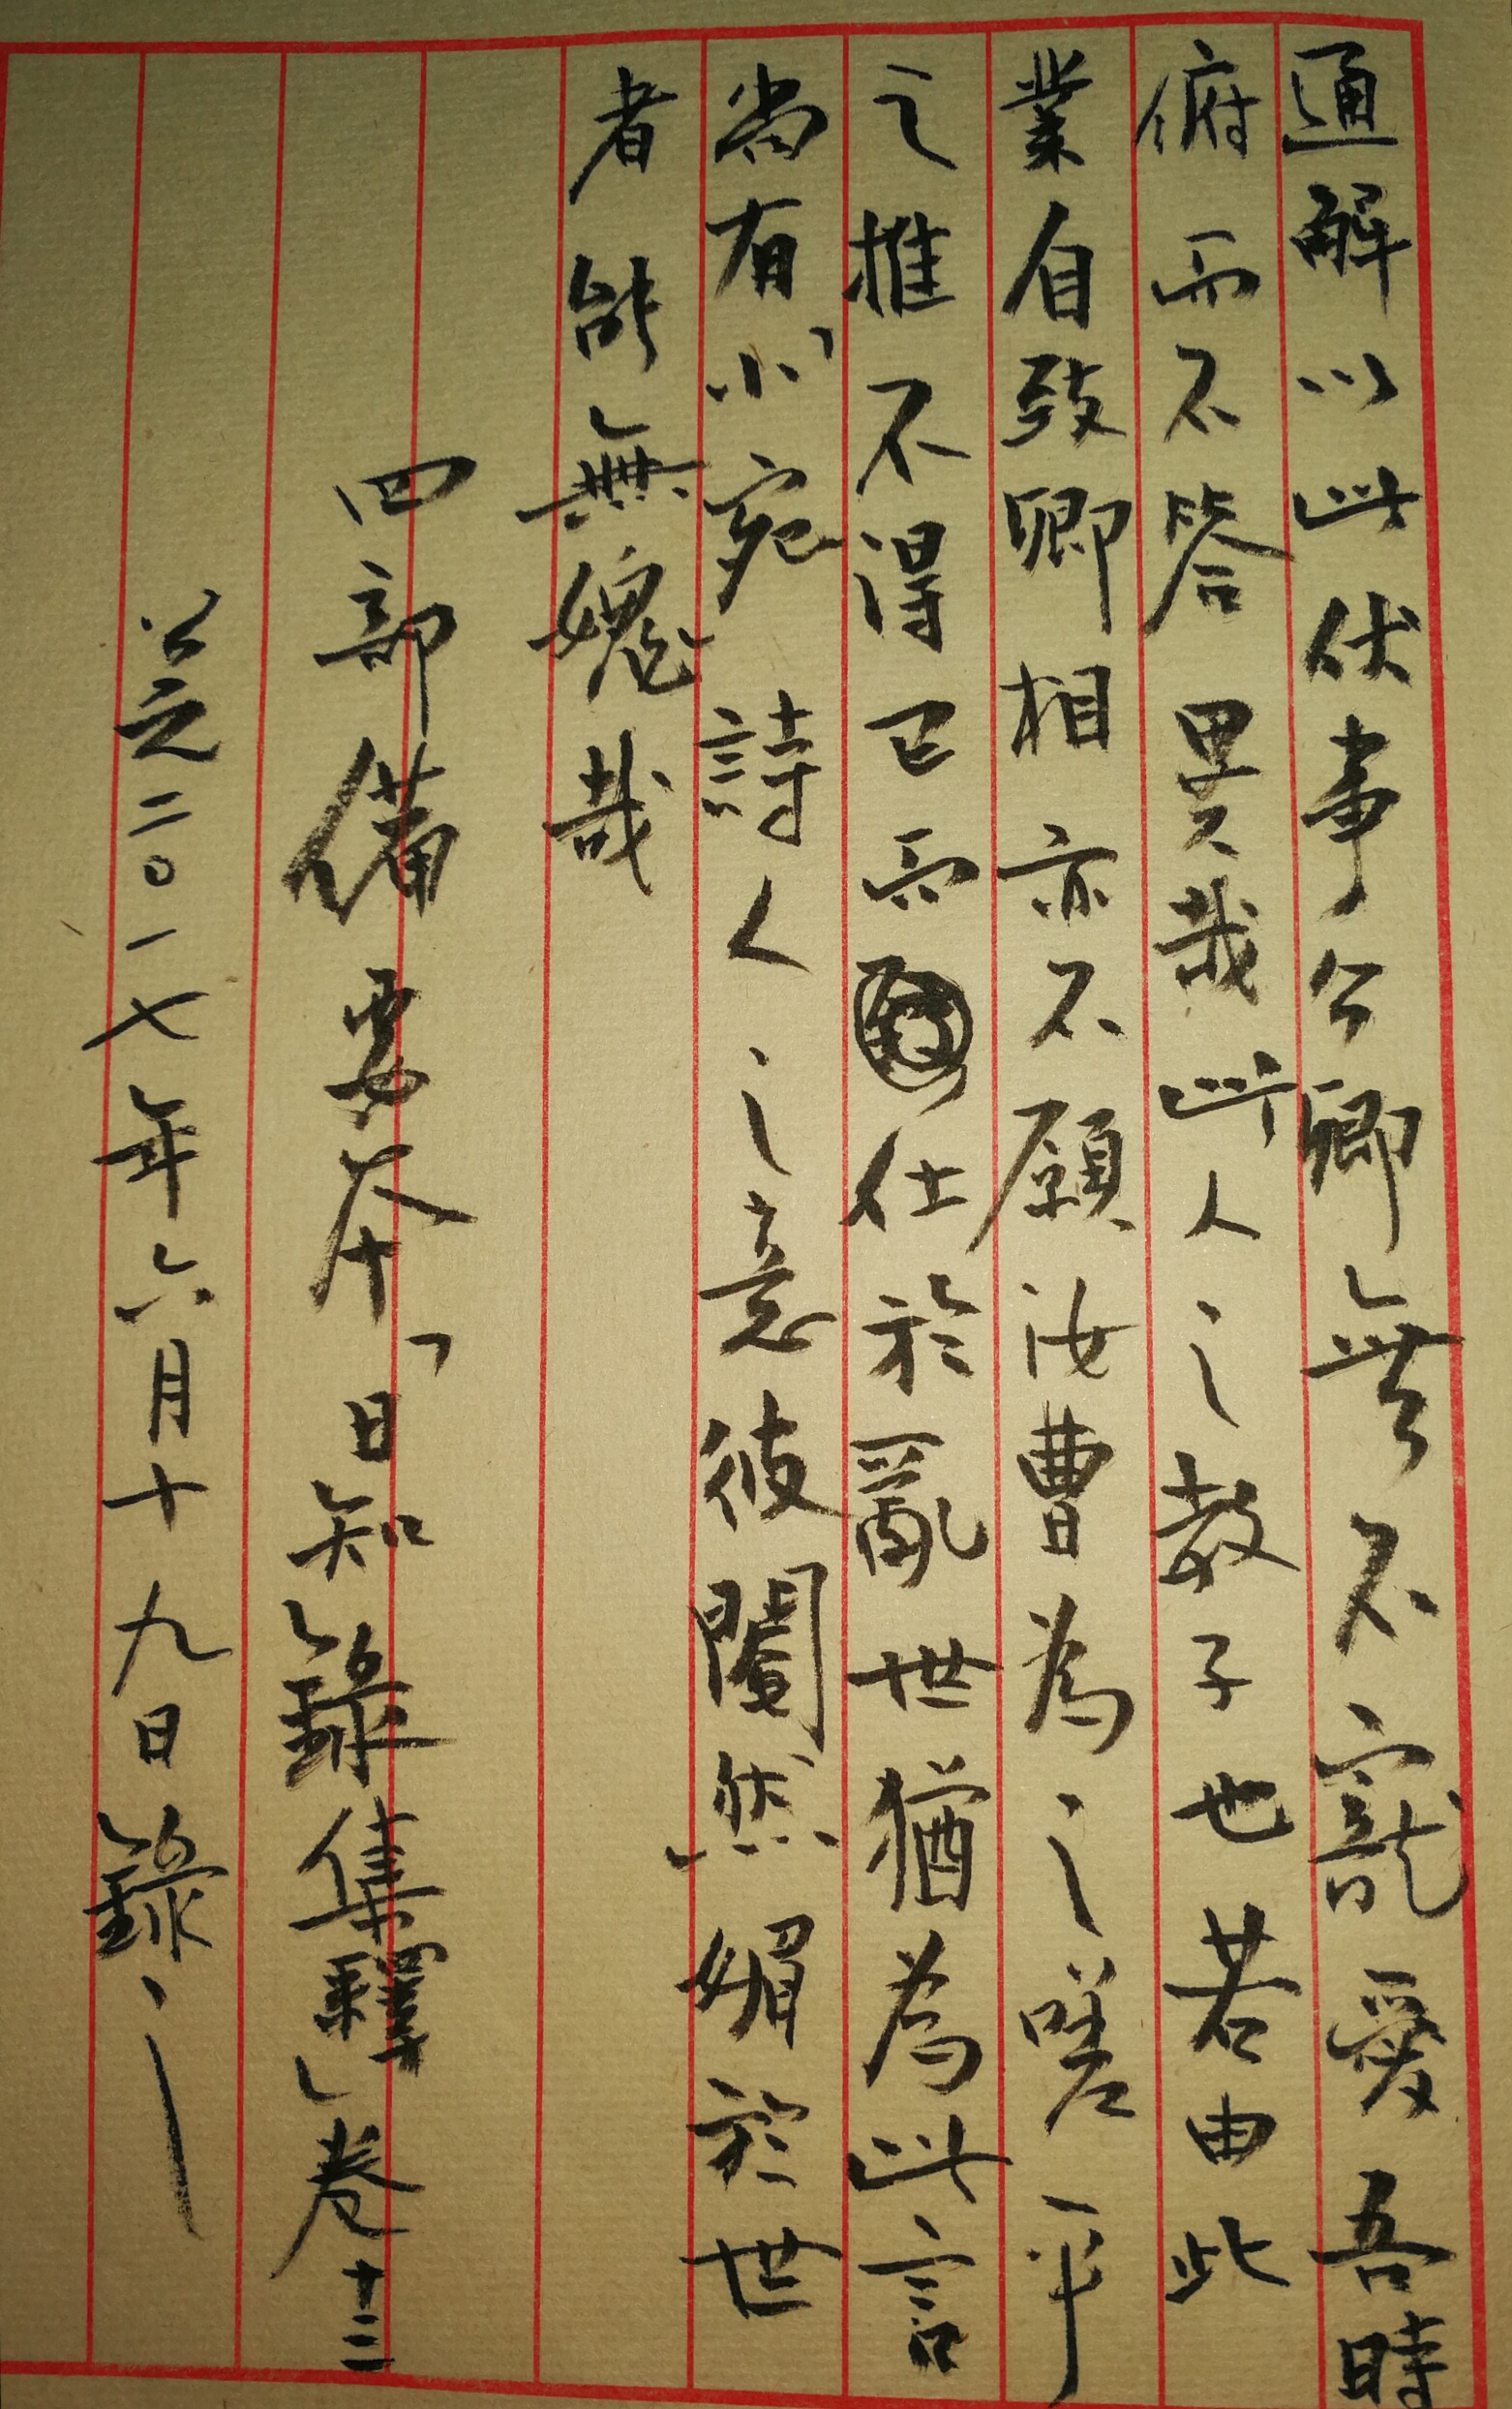 通解以此伏事公卿無不寵愛吾時
俯而不答異哉此人之教子也若由此
業自致卿相亦不願汝曹為之嗟乎
之推不得已而仕於亂世猶為此言
尚有小宛詩人之意彼閹然媚於世
者能無媿哉
四部備要本「日知錄集釋」卷十三
二〇一七年六月十九日錄之